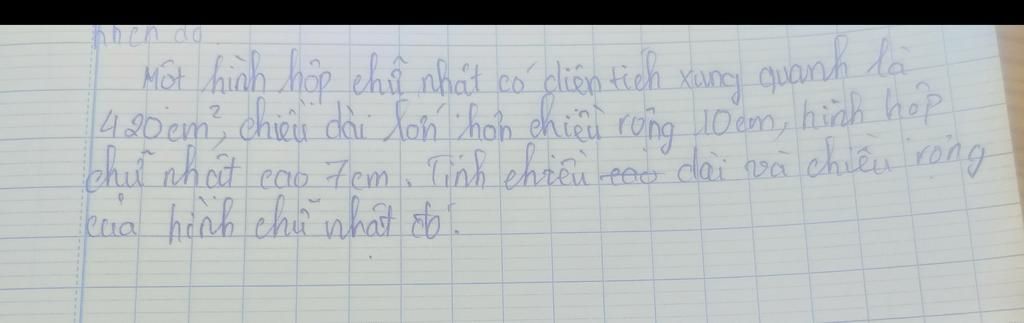 nhch đó
Một hình hộp chữ nhật có diện tích xung quanh là
420cm², chiều dài lớn hơn chiều rộng 10cm, hình hộp
chữ nhật cao 7cm. Tính chiều cao dài và chiều rộng
của hình chữ nhật đó.